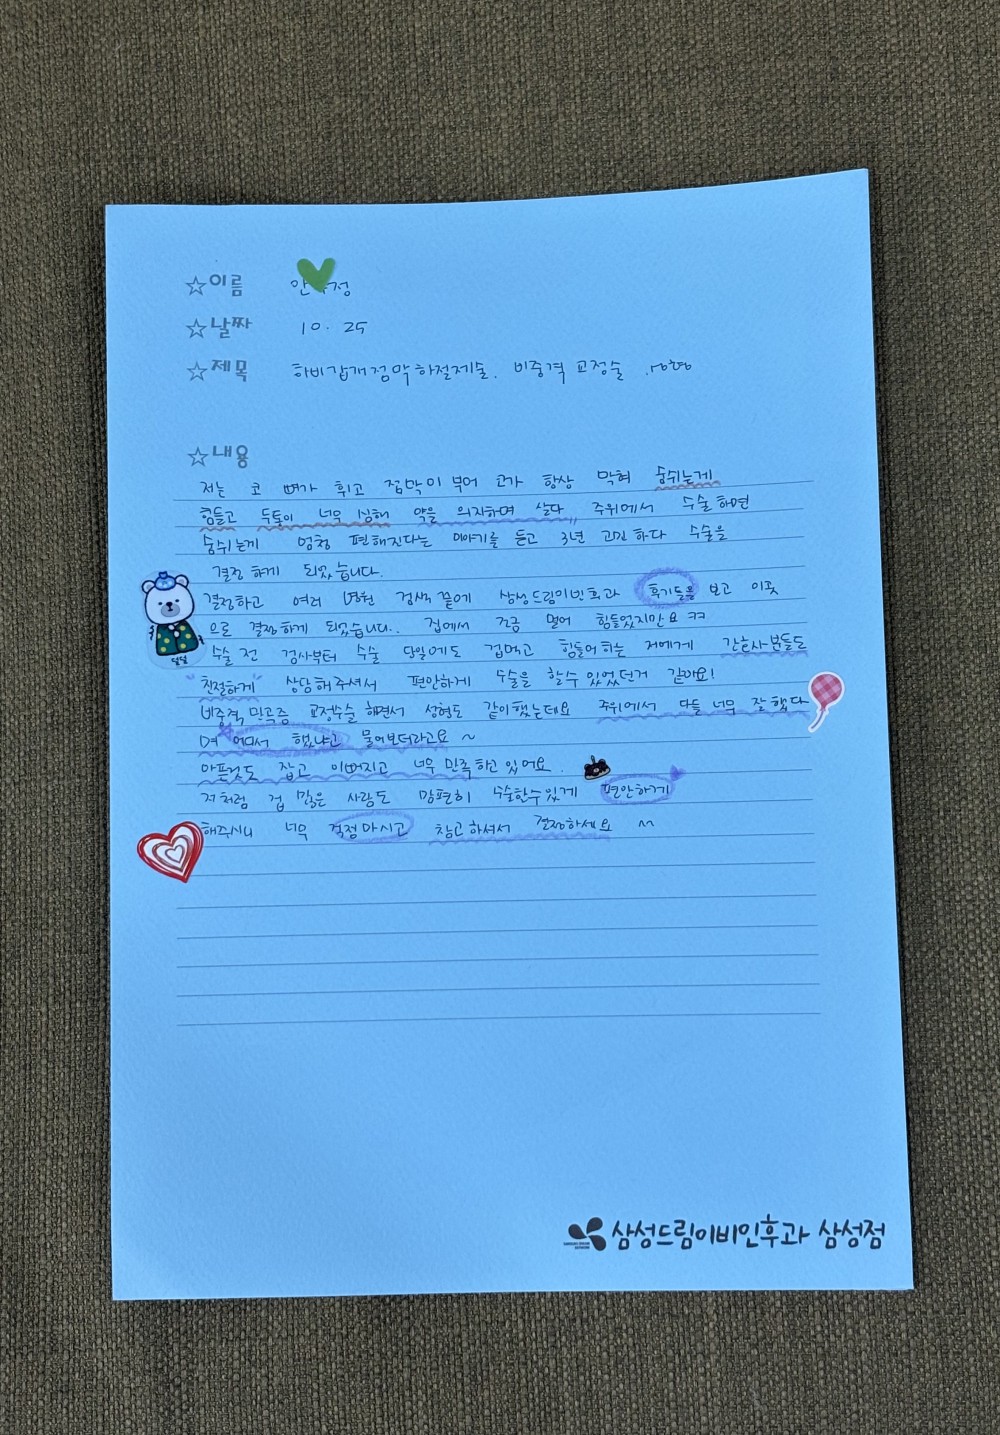 ☆이름 안 정
☆날짜 10. 25
☆제목 하비갑개점막하절제술. 비중격 교정술.
☆내용
저는 코 뼈가 휘고 점막이 부어 코가 항상 막혀 숨쉬는게
힘들고 두통이 너무 심해 약을 의지하며 살다 주위에서 수술하면
숨쉬는게 엄청 편해진다는 이야기를 듣고 3년 고민하다 수술을
결정하게 되었습니다.
결정하고 여러 병원 검색 끝에 삼성드림이비인후과 후기들을 보고 이곳
으로 결정하게 되었습니다.. 집에서 조금 멀어 힘들었지만요 ㅋㅋ
수술 전 검사부터 수술 당일에도 겁먹고 힘들어 하는 저에게 간호사분들도
"친절하게" 상담해주셔서 편안하게 수술을 할수 있었던거 같아요!
비중격, 만곡증 교정수술 하면서 성형도 같이했는데요 주위에서 다들 너무 잘 했다
며 어디서 했냐고 물어보더라고요 ~
아픈것도 잡고 이뻐지고 너무 만족하고 있어요.
저처럼 겁 많은 사람도 맘편히 수술할수있게 편안하게
해주시니 너무 걱정마시고 참고하셔서 결정하세요 ~
삼성드림이비인후과 삼성점